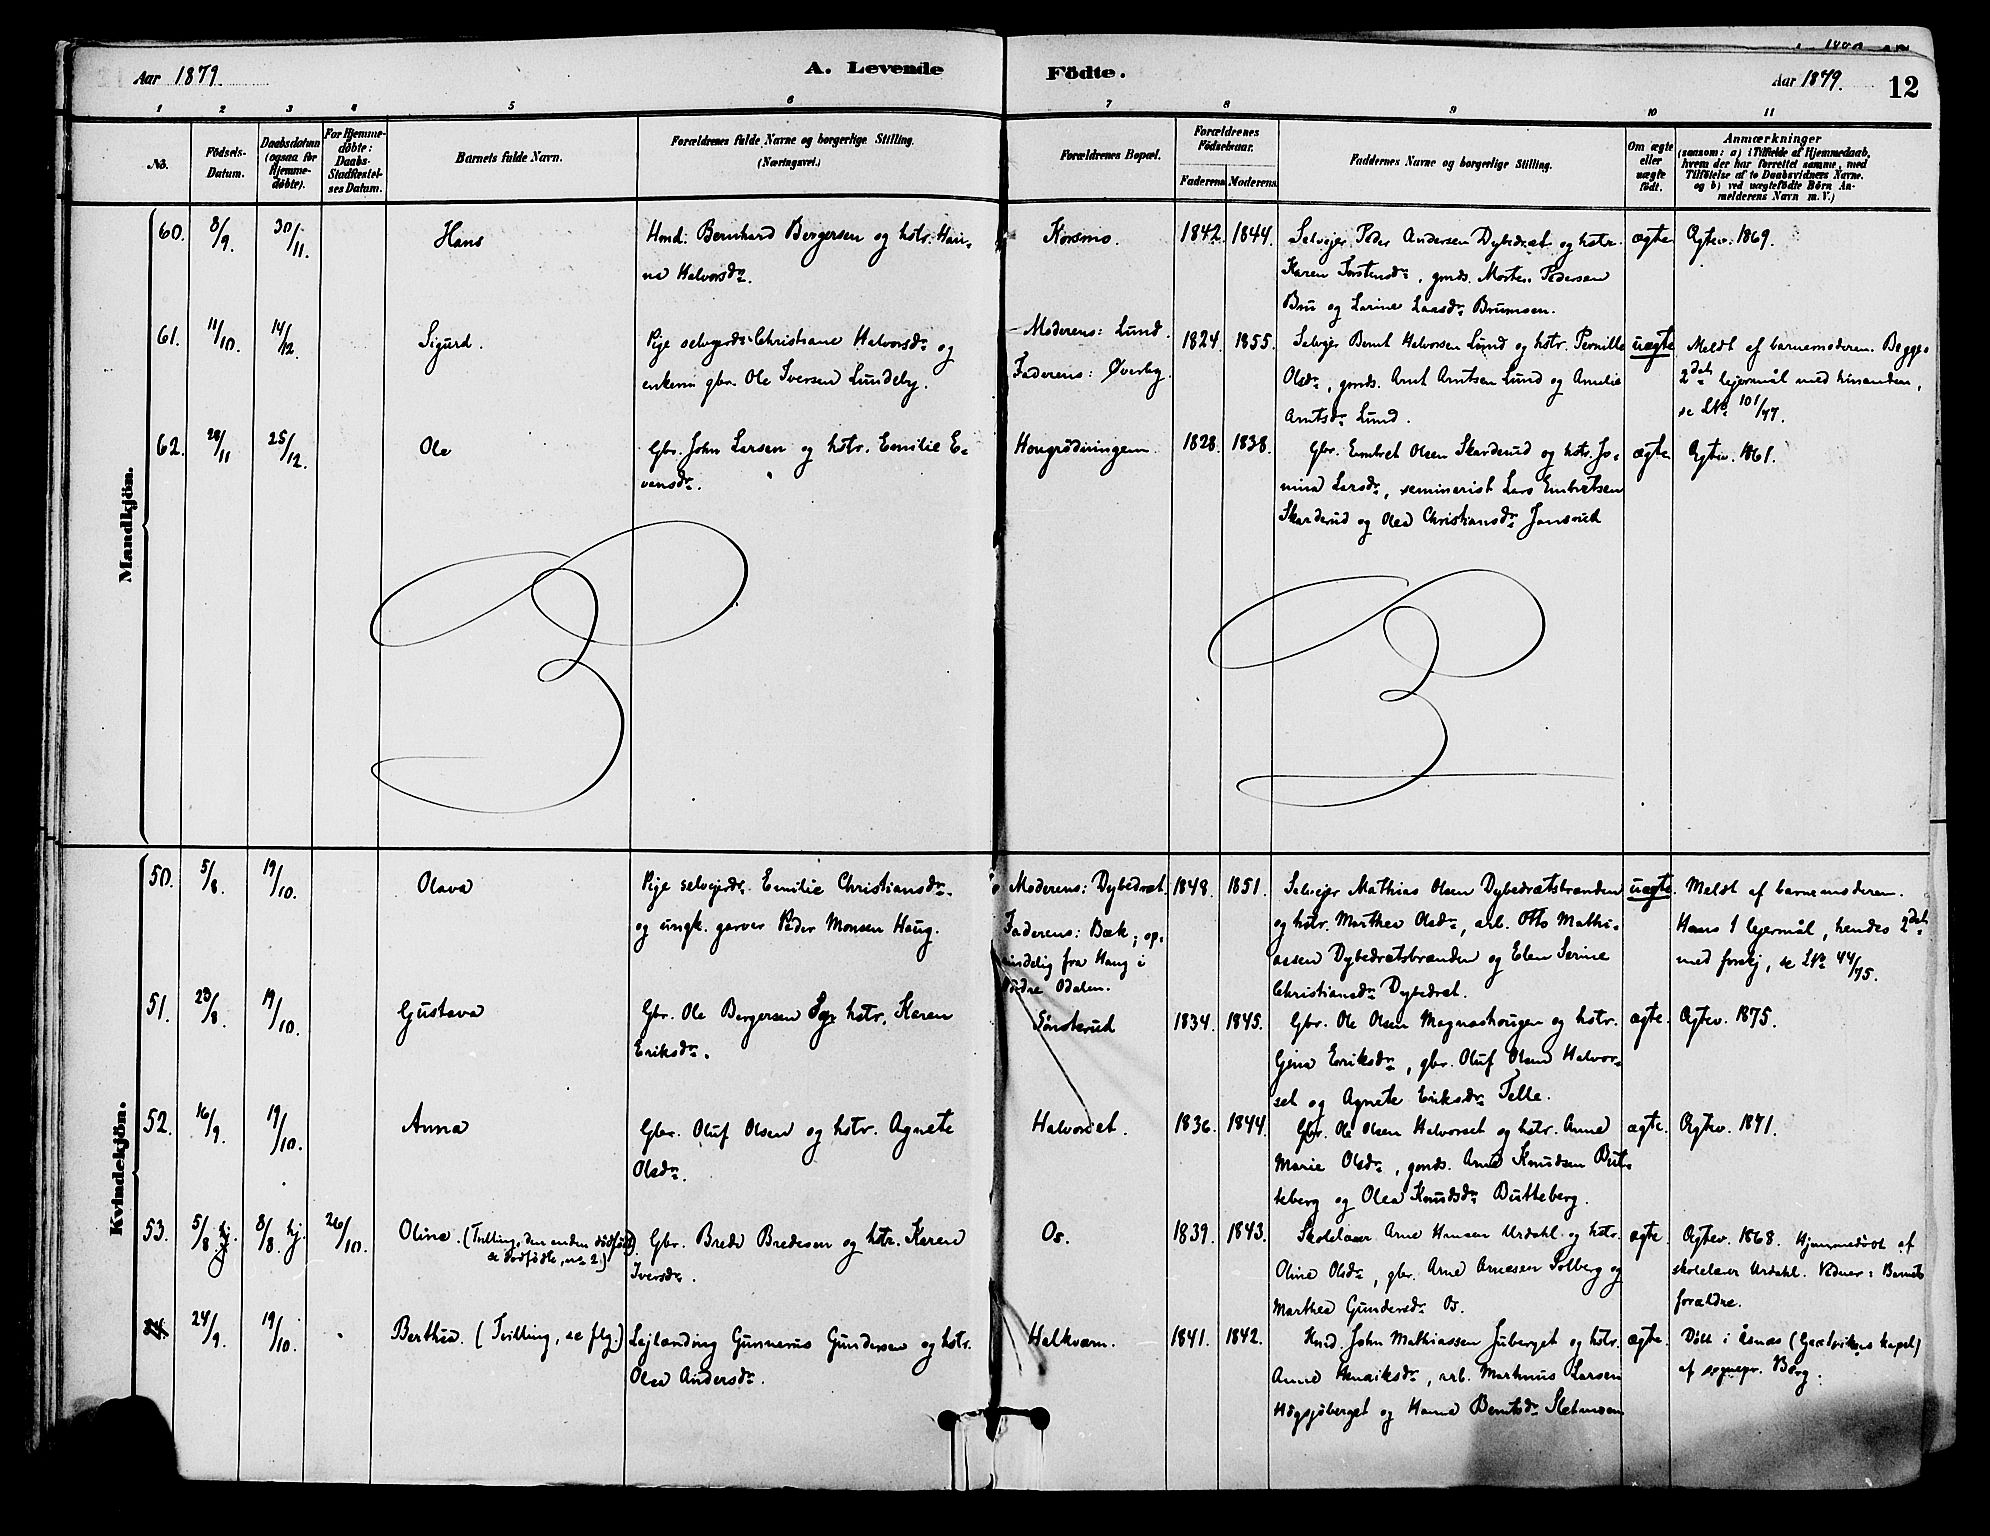 Aar 1879.
A. Levende Födte.
Aar 1879.
12
1 2 3 4 5 6 7 8 9 10 11
No.
Födsels-Datum.
Daabsdatum (ogsaa for Hjemmedöbte).
For Hjemmedöbte: Daabs-Stadfæstelses Datum.
Barnets fulde Navn.
Forældrenes fulde Navne og borgerlige Stilling. (Næringsvei.)
Forældrenes Bopæl.
Forældrenes Födselsaar.
Faderens. Moderens.
Faddernes Navne og borgerlige Stilling.
Om ægte eller uægte födt.
Anmærkninger
(saasom: a) i Tilfælde af Hjemmedaab, hvem der har forrettet samme, med Tilföielse af to Daabsvidners Navne. og b) ved uægtefödte Börn Anmelderens Navn m.V.)
Mandkjön.
60. 8/9. 30/11. Hans
Hmd. Bernhard Bergersen og hstr. Han-
na Halvorsdr.
Korsmo. 1842. 1844.
Selvejer Peder Andersen Dybedræt og hstr.
Karen Torstensdr, gmds. Morten Pedersen
Bru og Larine Larsdr Brumoen.
ægte Ægtev. 1869.
61. 11/10. 14/12. Sigurd.
Pige selvejerdr. Christiane Halvorsdr og
enkem. gbr. Ole Iversen Lundeby.
Moderens: Lund.
Faderens: Øverby.
1824. 1855.
Selvejer Bernt Halvorsen Lund og hstr. Pernille
Olsdr, gmds. Arnt Arntsen Lund og Amelie
Arntsdr Lund.
uægte
Meldt af barnemoderen. Begges
2det lejermål med hinanden,
se No 101/77.
62. 28/11 25/12. Ole
Gbr. John Larsen og hstr. Emilie E-
vensdr.
Hougrödningen. 1828. 1838.
Gbr. Embret Olsen Skarderud og hstr. Jo-
mina Larsdr, seminarist Lars Embretsen
Skarderud og Olea Christiansdr Jonsrud
ægte Ægtev. 1861.
Kvindekjön.
50. 5/8. 19/10. Olava
Pige selvejerdr. Emilie Christiansdr.
og ungk. garver Peder Monsen Haug.
Moderens: Dybedræt.
Faderens: Bæk; op-
rindelig fra Haug i
Nordre Odalen.
1848. 1851.
Selvejer Mathias Olsen Dybedrætsbranden
og hstr. Marthea Olsdr, arb. Otto Mathi-
assen Dybedrætsbranden og Elen Serine
Christiansdr Dybedræt.
uægte.
Meldt af barnemoderen.
Hans 1 lejermål, hendes 2det
med forskj, se No 44/75.
51. 23/8. 19/10. Gustava
Gbr. Ole Bergersen og hstr. Karen
Eriksdr.
Sønsterud 1834. 1845.
Gbr. Ole Olsen Magnashougen og hstr.
Gjena Eriksdr, gbr. Oluf Olsen Halvor-
set og Agnete Eriksdr Telle.
ægte. Ægtev. 1875.
52. 16/9. 19/10. Anna
Gbr. Oluf Olsen og hstr. Agnete
Olsdr.
Halvorset. 1836. 1844.
Gbr. Ole Olsen Halvorset og hstr. Anne
Marie Olsdr, gmds. Arne Knudsen But-
teberg og Olea Knudsdr Butteberg.
ægte. Ægtev. 1871.
53. 5/8. 8/8. hj. 26/10. Oline. (Tvilling, den anden dødfødt,
se Dødfødte, no 2.)
Gbr. Brede Bredesen og hstr. Karen
Iversdr.
Os. 1839. 1843.
Skolelærer Arne Hansen Urdahl og hstr.
Oline Olsdr, gbr. Arne Arnesen Solberg og
Marthea Gundersdr Os.
ægte.
Ægtev. 1868. Hjemmedøbt af
skolelærer Urdahl. Vidner: Barnets
forældre.
24/9. 19/10. Berthe. (Tvilling, se flg.)
Lejlanding Gunnerus Gundersen og hstr.
Olea Andersdr.
Halkværn. 1841. 1842.
Hmd. John Mathiassen Juberget og hstr.
Anne Henriksdr, arb. Marthinus Larsen
Högsjöberget og Hanna Berntsdr Sletmoen
ægte.
Døbt i Åsnas (Gravbergets kapel)
af sognepr. Berg.